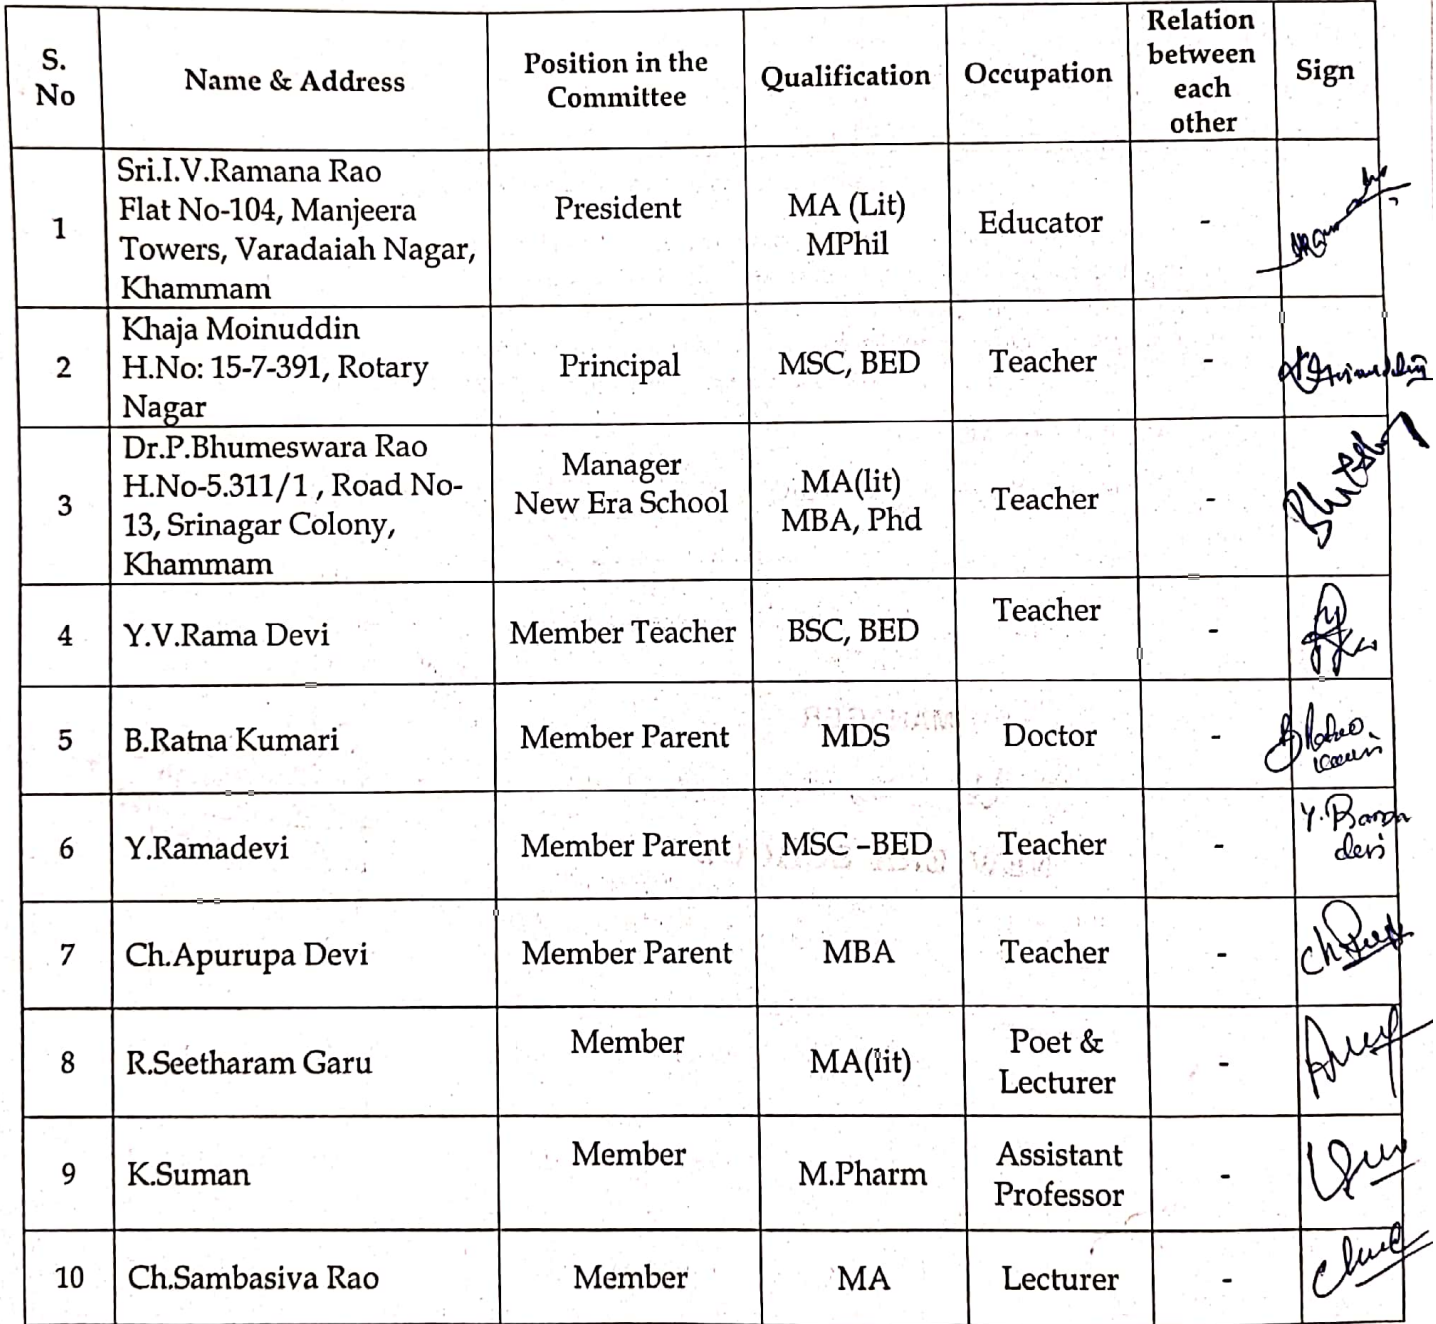 S. No
Name & Address
Position in the Committee
Qualification
Occupation
Relation between each other
Sign
1
Sri.I.V.Ramana Rao
Flat No-104, Manjeera
Towers, Varadaiah Nagar,
Khammam
President
MA (Lit)
MPhil
Educator
-
2
Khaja Moinuddin
H.No: 15-7-391, Rotary
Nagar
Principal
MSC, BED
Teacher
-
3
Dr.P.Bhumeswara Rao
H.No-5.311/1 , Road No-
13, Srinagar Colony,
Khammam
Manager
New Era School
MA(lit)
MBA, Phd
Teacher
-
4
Y.V.Rama Devi
Member Teacher
BSC, BED
Teacher
-
5
B.Ratna Kumari
Member Parent
MDS
Doctor
-
6
Y.Ramadevi
Member Parent
MSC –BED
Teacher
-
Y. Rama
devi
7
Ch.Apurupa Devi
Member Parent
MBA
Teacher
-
8
R.Seetharam Garu
Member
MA(lit)
Poet &
Lecturer
-
9
K.Suman
Member
M.Pharm
Assistant
Professor
-
10
Ch.Sambasiva Rao
Member
MA
Lecturer
-